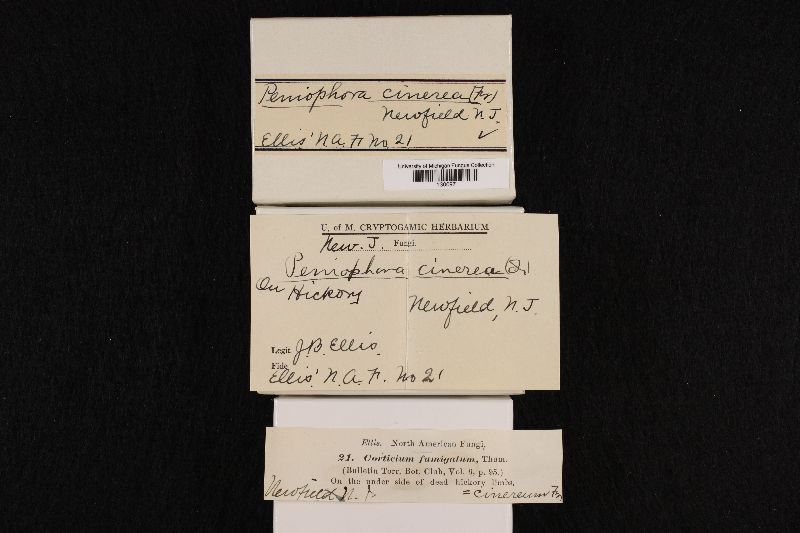 Peniophora cinerea (Fr)
Newfield N.J.
✓
Ellis' N.A.F. No. 21
University of Michigan Fungus Collection
U. of M. CRYPTOGAMIC HERBARIUM
New. J. Fungi.
Peniophora cinerea (Fr)
On Hickory
Newfield, N.J.
Legit J.B. Ellis.
Fide
Ellis' N.A.F. No 21
Ellis. North American Fungi,
21. Corticium fumigatum, Thum.
(Bulletin Torr. Bot. Club, Vol. 6, p. 95.)
On the under side of dead hickory limbs,
Newfield N.J. = cinereum Fr